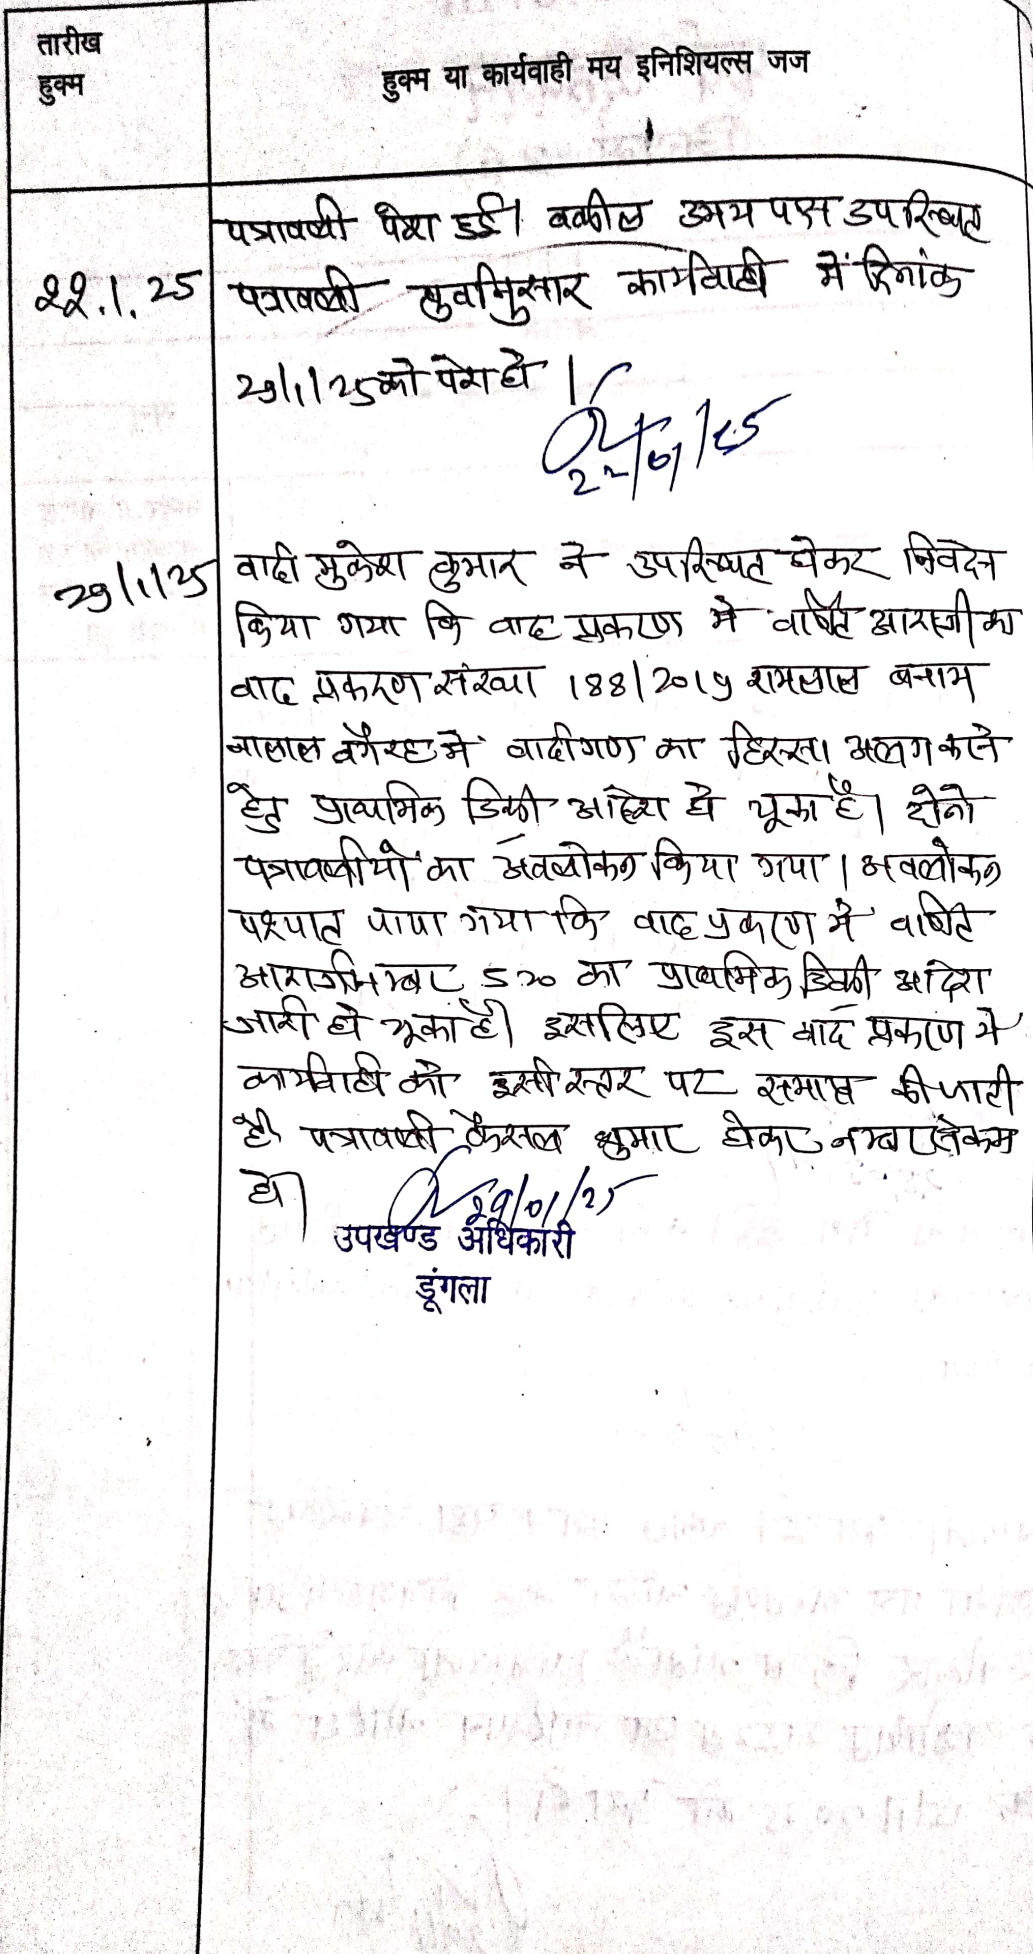 तारीख
हुक्म
हुक्म या कार्यवाही मय इनिशियल्स जज
22.1.25
पत्रावली पेश हुई। वकील उभय पक्ष उपस्थित
पत्रावली पुर्वानुसार कार्यवाही में दिनांक
29/1/25 को पेश हो।
22/01/25
29/1/25
वादी मुकेश कुमार ने उपस्थित होकर निवेदन
किया गया कि वाद प्रकरण मे वर्णित आराजी का
वाद प्रकरण संख्या 188/2019 रामलाल बनाम
वगैरह में वादीगण का हिस्सा अलग करने
हेतु प्राथमिक डिक्री आदेश हो चूका है। दोनो
पत्रावलीयों का अवलोकन किया गया। अवलोकन
पश्चात पाया गया कि वाद प्रकरण में वर्णित
आराजी नम्बर का प्राथमिक डिक्री आदेश
जारी हो चूका है। इसलिए इस वाद प्रकरण मे
कार्यवाही को इसी स्तर पर समाप्त की जाती
है पत्रावली फैसल शुमार होकर नम्बर से कम
हो।
29/01/25
उपखण्ड अधिकारी
डूंगला